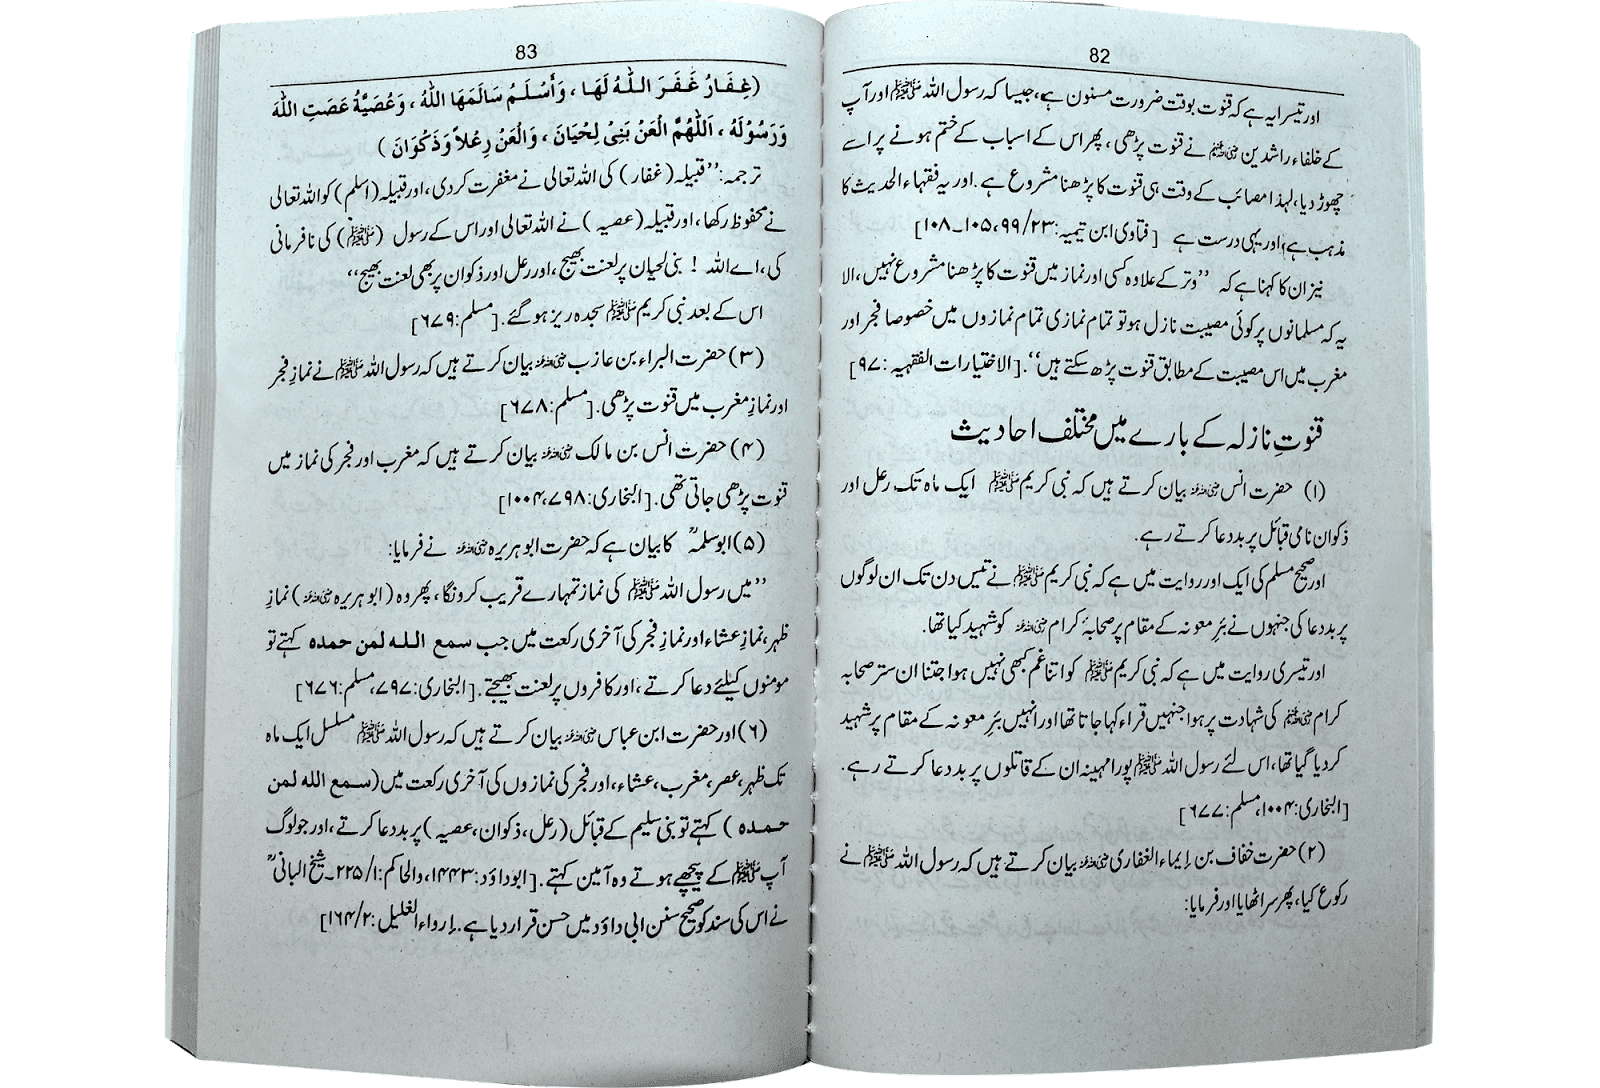 82
اور تیسرا یہ ہے کہ قنوت بوقت ضرورت مسنون ہے، جیسا کہ رسول اللہ ﷺ اور آپ
کے خلفاء راشدین رضی اللہ عنہم نے قنوت پڑھی، پھر اس کے اسباب کے ختم ہونے پر اسے
چھوڑ دیا، لہذا مصائب کے وقت ہی قنوت کا پڑھنا مشروع ہے. اور یہ فقہاء الحدیث کا
مذہب ہے، اور یہی درست ہے [فتاوی ابن تیمیہ: ۲۳/۹۹، ۱۰۵۔۱۰۸]
نیز ان کا کہنا ہے کہ ’’وتر کے علاوہ کسی اور نماز میں قنوت کا پڑھنا مشروع نہیں، الا
یہ کہ مسلمانوں پر کوئی مصیبت نازل ہو تو تمام نمازی تمام نمازوں میں خصوصا فجر اور
مغرب میں اس مصیبت کے مطابق قنوت پڑھ سکتے ہیں‘‘. [الاختیارات الفقہیہ: ۹۷]
قنوتِ نازلہ کے بارے میں مختلف احادیث
(۱) حضرت انس رضی اللہ عنہ بیان کرتے ہیں کہ نبی کریم ﷺ ایک ماہ تک رعل اور
ذکوان نامی قبائل پر بددعا کرتے رہے.
اور صحیح مسلم کی ایک اور روایت میں ہے کہ نبی کریم ﷺ نے تیس دن تک ان لوگوں
پر بددعا کی جنہوں نے بئر معونہ کے مقام پر صحابۂ کرام رضی اللہ عنہم کو شہید کیا تھا.
اور تیسری روایت میں ہے کہ نبی کریم ﷺ کو اتنا غم کبھی نہیں ہوا جتنا ان ستر صحابہ
کرام رضی اللہ عنہم کی شہادت پر ہوا جنہیں قراء کہا جاتا تھا اور انہیں بئر معونہ کے مقام پر شہید
کر دیا گیا تھا، اس لئے رسول اللہ ﷺ پورا مہینہ ان کے قاتلوں پر بددعا کرتے رہے.
[البخاری: ۱۰۰۴، مسلم: ۶۷۷]
(۲) حضرت خفاف بن إیماء الغفاری رضی اللہ عنہ بیان کرتے ہیں کہ رسول اللہ ﷺ نے
رکوع کیا، پھر سر اٹھایا اور فرمایا:
83
(غِفَارُ غَفَرَ اللّٰهُ لَهَا، وَأَسْلَمُ سَالَمَهَا اللّٰهُ، وَعُصَيَّةُ عَصَتِ اللّٰهَ
وَرَسُوْلَهُ، اَللّٰهُمَّ الْعَنْ بَنِيْ لِحْيَانَ، وَالْعَنْ رِعْلاً وَذَكْوَانَ)
ترجمہ: ’’قبیلہ (غفار) کی اللہ تعالی نے مغفرت کردی، اور قبیلہ (اسلم) کو اللہ تعالی
نے محفوظ رکھا، اور قبیلہ (عصیہ) نے اللہ تعالی اور اس کے رسول (ﷺ) کی نافرمانی
کی، اے اللہ ! بنی لحیان پر لعنت بھیج، اور رعل اور ذکوان پر بھی لعنت بھیج‘‘
اس کے بعد نبی کریم ﷺ سجدہ ریز ہوگئے. [مسلم: ۶۷۹]
(۳) حضرت البراء بن عازب رضی اللہ عنہ بیان کرتے ہیں کہ رسول اللہ ﷺ نے نمازِ فجر
اور نمازِ مغرب میں قنوت پڑھی. [مسلم: ۶۷۸]
(۴) حضرت انس بن مالک رضی اللہ عنہ بیان کرتے ہیں کہ مغرب اور فجر کی نماز میں
قنوت پڑھی جاتی تھی. [البخاری: ۷۹۸، ۱۰۰۴]
(۵) ابوسلمہؒ کا بیان ہے کہ حضرت ابو ہریرہ رضی اللہ عنہ نے فرمایا:
’’میں رسول اللہ ﷺ کی نماز تمہارے قریب کرونگا، پھر وہ (ابو ہریرہ رضی اللہ عنہ) نمازِ
ظہر، نمازِ عشاء اور نمازِ فجر کی آخری رکعت میں جب سمع الله لمن حمده کہتے تو
مومنوں کیلئے دعا کرتے، اور کافروں پر لعنت بھیجتے. [البخاری: ۷۹۷، مسلم: ۶۷۶]
(۶) اور حضرت ابن عباس رضی اللہ عنہ بیان کرتے ہیں کہ رسول اللہ ﷺ مسلسل ایک ماہ
تک ظہر، عصر، مغرب، عشاء، اور فجر کی نمازوں کی آخری رکعت میں (سمع الله لمن
حمده) کہتے تو بنی سلیم کے قبائل (رعل، ذکوان، عصیہ) پر بددعا کرتے، اور جو لوگ
آپ ﷺ کے پیچھے ہوتے وہ آمین کہتے. [ابوداود: ۱۴۴۳، والحاکم: ۱/۲۲۵۔ شیخ البانیؒ
نے اس کی سند کو صحیح سنن ابی داؤد میں حسن قرار دیا ہے. إرواء الغلیل: ۲/۱۶۴]